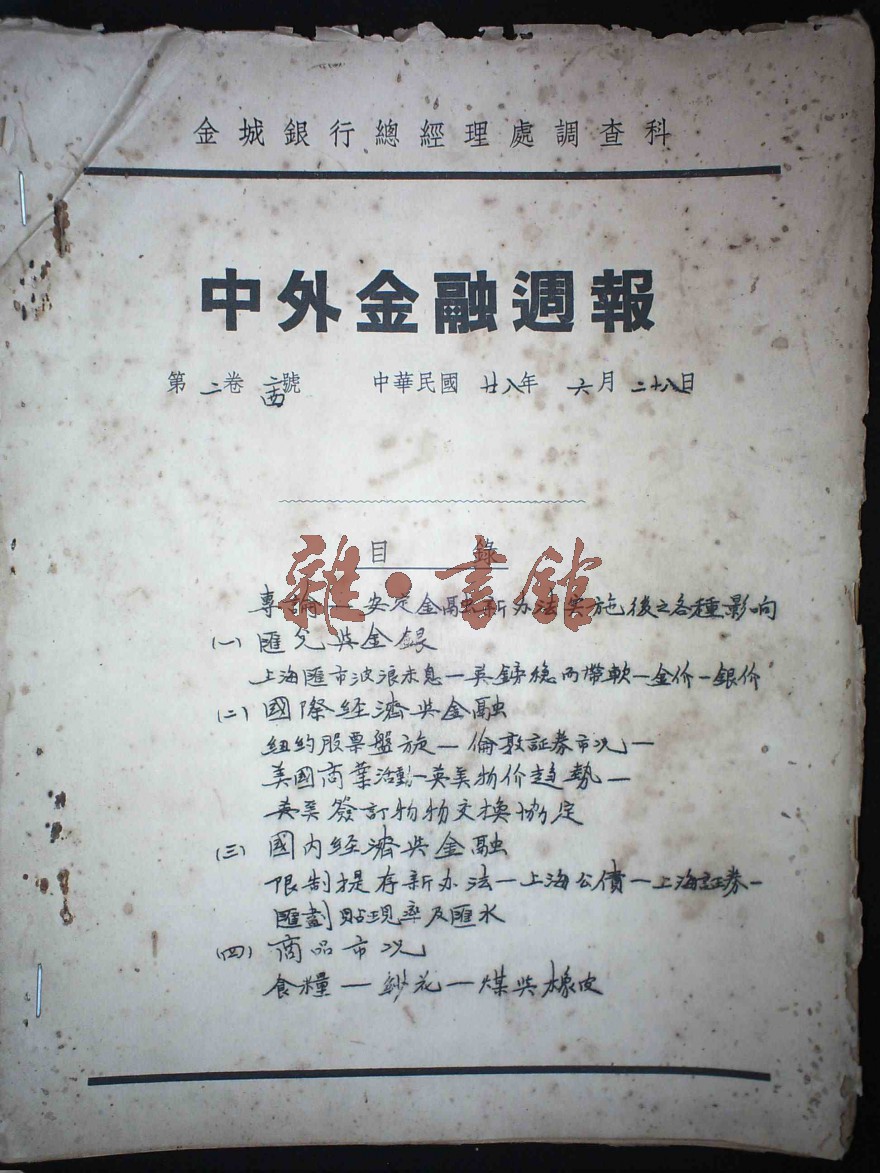 金城銀行總經理處調查科
中外金融週報
第二卷 號 中華民國廿八年 六月二十八日
目錄
雜·書館
專論——安定金融新办法实施後之各種影响
(一) 匯兑與金銀
上海匯市波浪未息—英鎊穩而帶軟—金价—銀价
(二) 國際経濟與金融
纽约股票盤旋—倫敦証券市况—
美國商業活動—英美物价趋勢—
英美簽訂物物交換協定
(三) 國内经濟與金融
限制提存新办法—上海公債—上海証券—
匯劃貼現率及匯水
(四) 商品市况
食糧—紗花—煤與橡皮